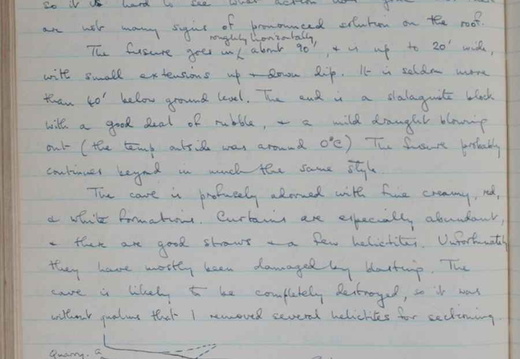 so it is hard to see what action has gone on. There
are not many signs of pronounced solution on the roof.
roughly horizontally
The fissure goes in about 90', & is up to 20' wide,
with small extensions up & down dip. It is seldom more
than 60' below ground level. The end is a stalagmite block
with a good deal of rubble, & a mild draught blowing
out (the temp outside was around 0°C) The fissure probably
continues beyond in much the same style.
The cave is profusely adorned with fine creamy, red,
& white formations. Curtains are especially abundant,
& there are good straws & a few helictites. Unfortunately
they have mostly been damaged by blasting. The
cave is likely to be completely destroyed, so it was
without qualms that I removed several helictites for sectioning.
Quarry